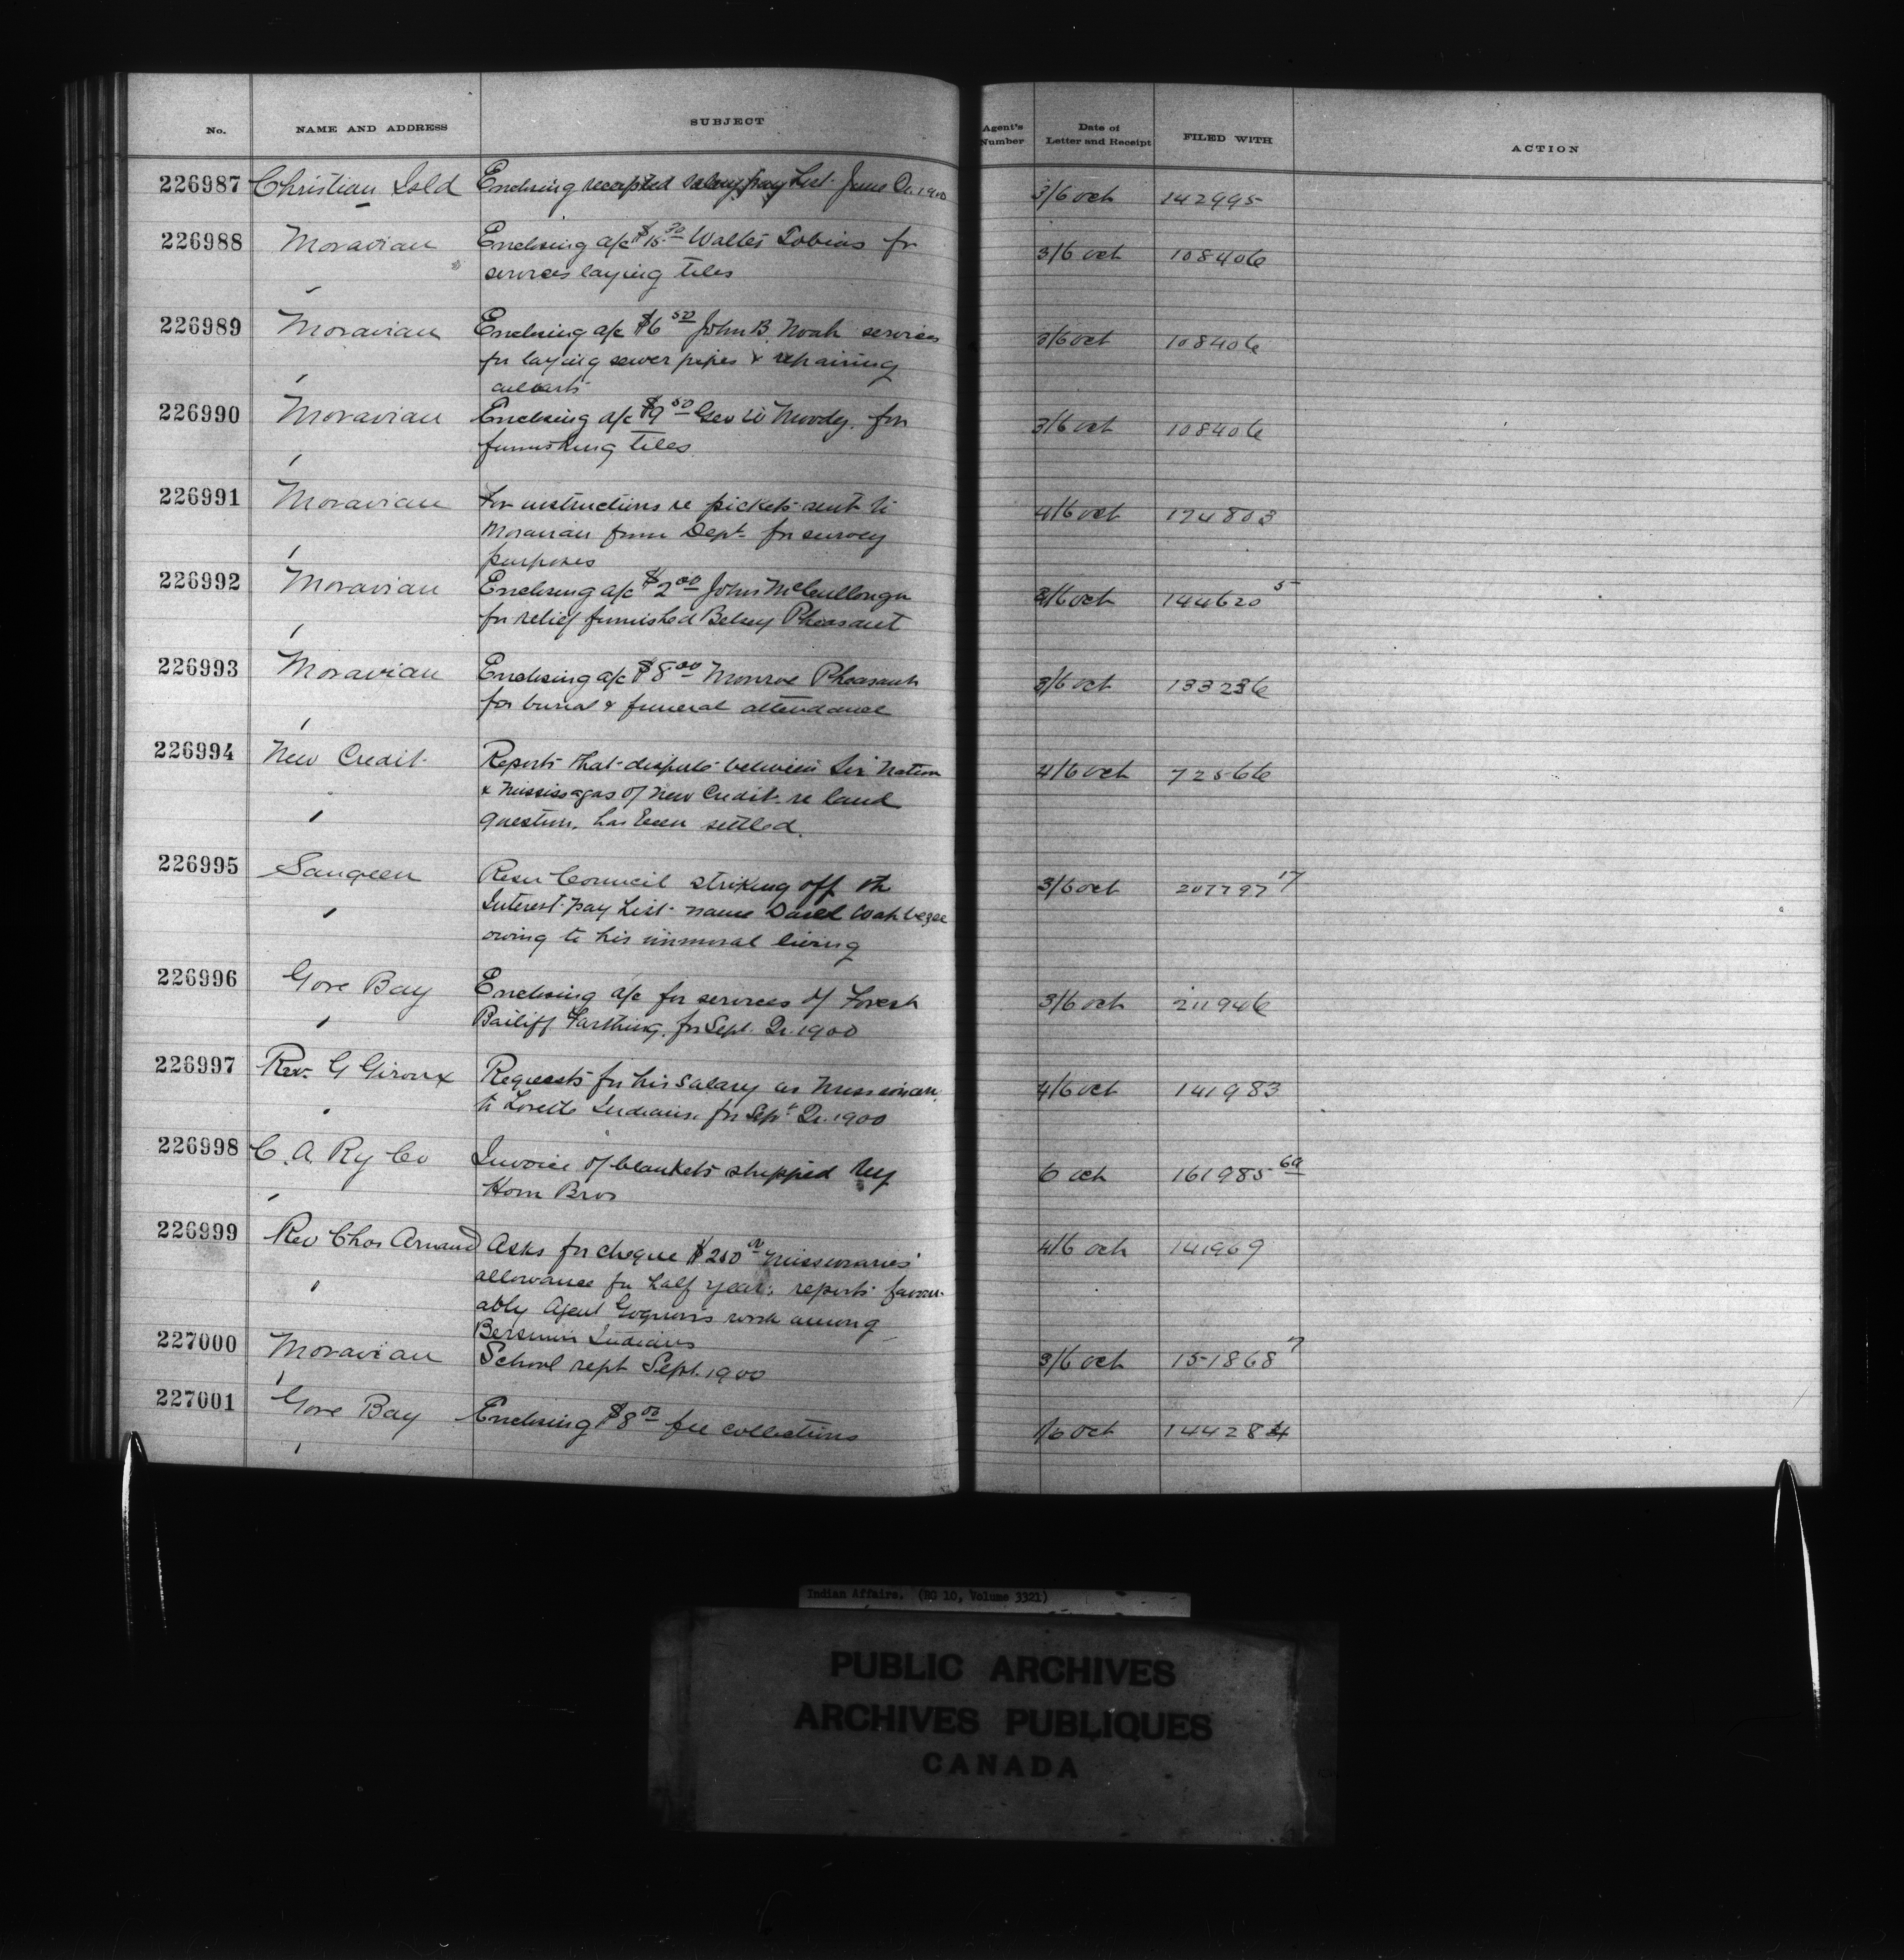 No. NAME AND ADDRESS SUBJECT Agent's Number Date of Letter and Receipt FILED WITH ACTION
226987 Christian Isld Enclosing receipted salary pay List June Qr. 1900 3/6 Oct 142995
226988 Moravian Enclosing a/c Walter Tobias for 3/6 Oct 108406
services laying tiles
226989 Moravian Enclosing a/c $6 50 John B. Noah services 3/6 Oct 108406
for laying sewer pipes & repairing
culverts
226990 Moravian Enclosing a/c $9 50 Geo W Moody. for 3/6 Oct 108406
furnishing tiles.
226991 Moravian For instructions re pickets sent to 4/6 Oct 174803
Moravian from Dept. for survey
purposes
226992 Moravian Enclosing a/c $2 00 John McCullough /6 Oct 144620 5
for relief furnished Betsey Pheasant
226993 Moravian Enclosing a/c $8 00 Monroe Pheasant 3/6 Oct 133236
for burial & funeral attendance
226994 New Credit Reports that dispute between Six Nation 4/6 Oct 72566
& Mississagas of New Credit re land
question, has been settled.
226995 Saugeen Resn Council striking off the 3/6 Oct 207797 17
Interest pay List name David Wahbezee
owing to his immoral living
226996 Gore Bay Enclosing a/c for services of Forest 3/6 Oct 211946
Bailiff Farthing, for Sept. Qr. 1900
226997 Rev. G Giroux Requests for his salary as Missionary 4/6 Oct 141983
to Lorette Indians. for Sept Qr. 1900
226998 C. A. Ry Co Invoice of blankets shipped by 6 Oct 161985 60
Horn Bros
226999 Rev Chas Arnaud Asks for cheque $200 00 Missionaries' 4/6 Oct 141969
allowance for half year; reports favour-
ably Agent Gagnon's work among
Bersimis Indians
227000 Moravian School rept Sept. 1900 3/6 Oct 151868 7
227001 Gore Bay Enclosing $8 00 fee collections /6 Oct 144284
Indian Affairs. (RG 10, Volume 3321)
PUBLIC ARCHIVES
ARCHIVES PUBLIQUES
CANADA